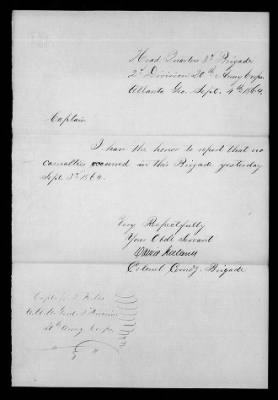 Head Quarters 3d Brigade
2d Division 20th Army Corps
Atlanta Geo. Sept. 4th 1864
Captain
I have the honor to report that no
casualties occurred in this Brigade yesterday
Sept. 3d 1864.
Very Respectfully
Your Obdt Servant
David Ireland
Colonel Comd'g. Brigade
A.A.A. Genl 2d Division
20th Army Corps